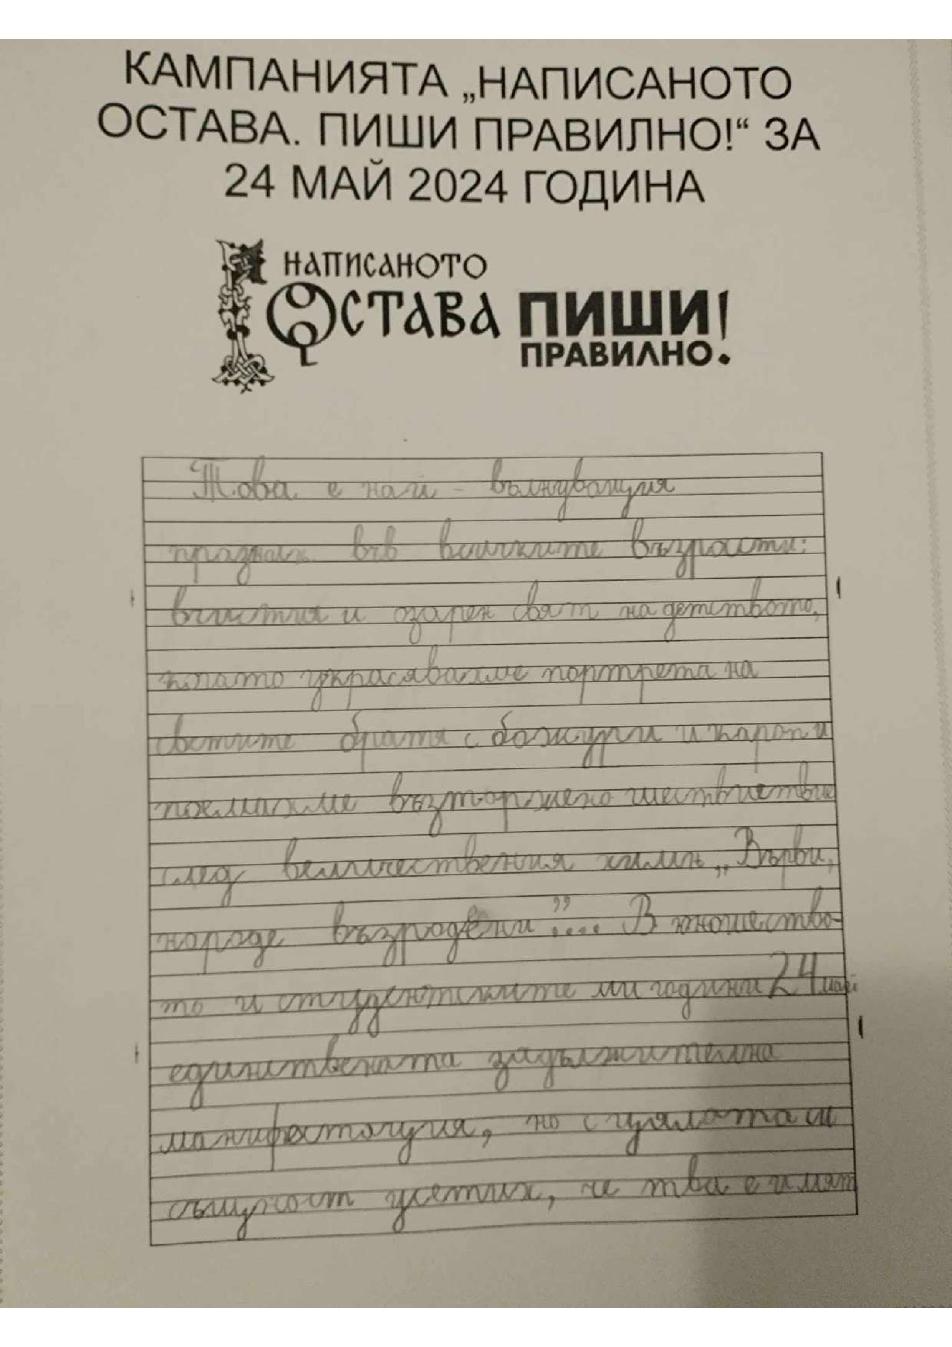 КАМПАНИЯТА „НАПИСАНОТО
ОСТАВА. ПИШИ ПРАВИЛНО!“ ЗА
24 МАЙ 2024 ГОДИНА
НАПИСАНОТО
ОСТАВА ПИШИ!
ПРАВИЛНО
Това е най - вълнуващия
празник във всичките възрасти:
в чистия и озарен свят на детството,
когато украсявахме портрета на
светите братя с божури и
поемахме възторжено шествие
след величествения химн „Върви,
народе възродени”.... В юношество-
то и студентските ми години 24 май
единствената задължителна
манифестация, но с цялата си
същност усетих, че тва е имят